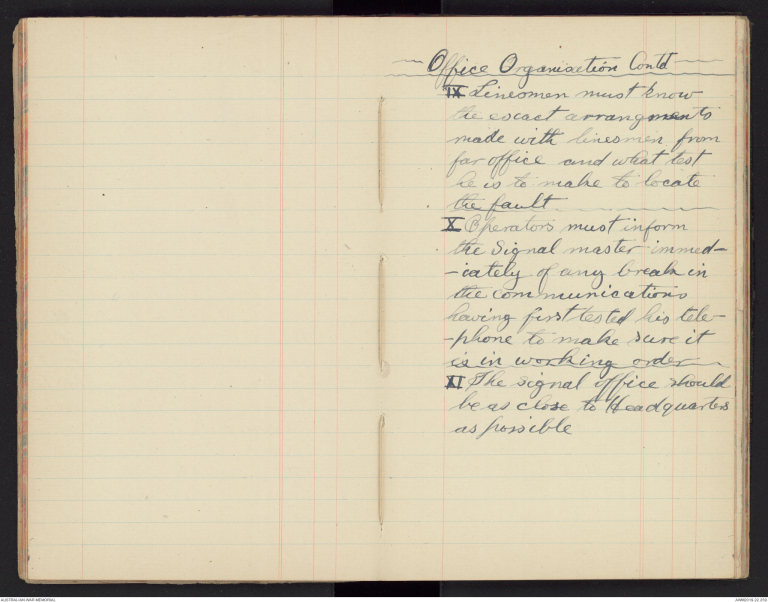 Office Organisation Contd
IX Linesmen must know
the exact arrangments
made with linesmen from
far office and what test
he is to make to locate
the fault
X Operators must inform
the Signal master immed-
-iately of any break in
the communications
having first tested his tele-
-phone to make sure it
is in working order
XI The signal office should
be as close to Headquarters
as possible
AUSTRALIAN WAR MEMORIAL